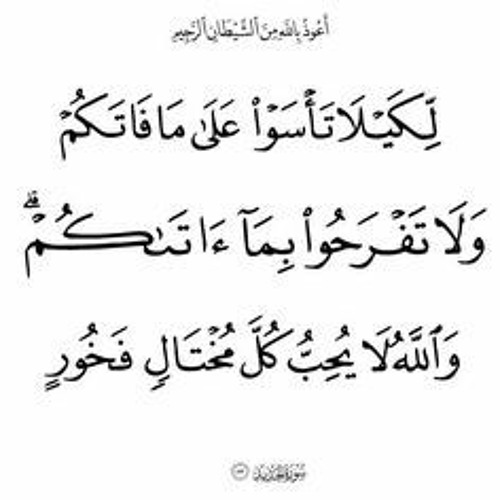 أَعُوذُ بِاللَّهِ مِنَ ٱلشَّيْطَانِ ٱلرَّجِيمِ
لِّكَيْلَا تَأْسَوْا۟ عَلَىٰ مَا فَاتَكُمْ
وَلَا تَفْرَحُوا۟ بِمَآ ءَاتَىٰكُمْ ۗ
وَٱللَّهُ لَا يُحِبُّ كُلَّ مُخْتَالٍ فَخُورٍ
سُورَةُ الحَدِيد